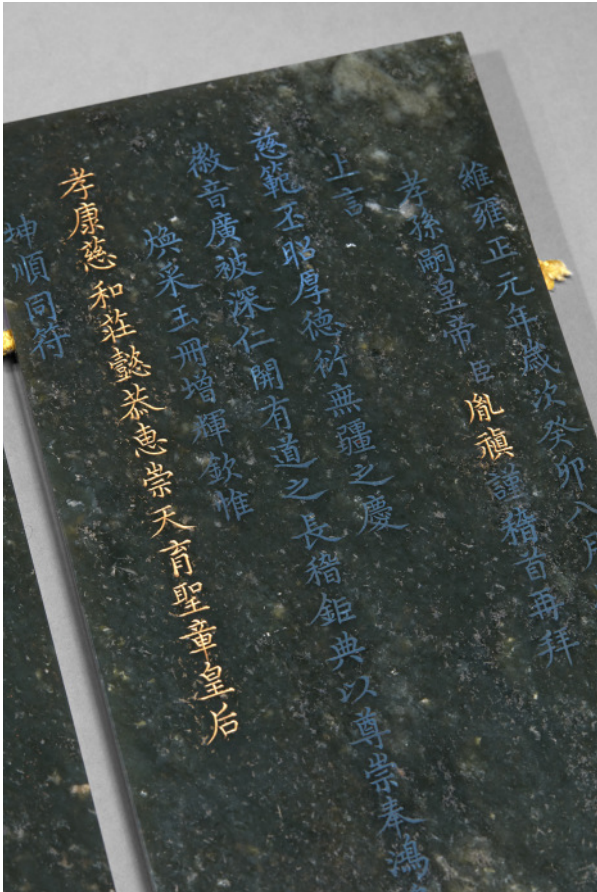 維雍正元年歲次癸卯八月
孝孫嗣皇帝臣胤禛謹稽首再拜
上言
慈範丕昭厚德衍無疆之慶
徽音廣被深仁開有道之長稽鉅典以尊崇奉鴻
煥采玉冊增輝欽惟
孝康慈和莊懿恭惠崇天育聖章皇后
坤順同符